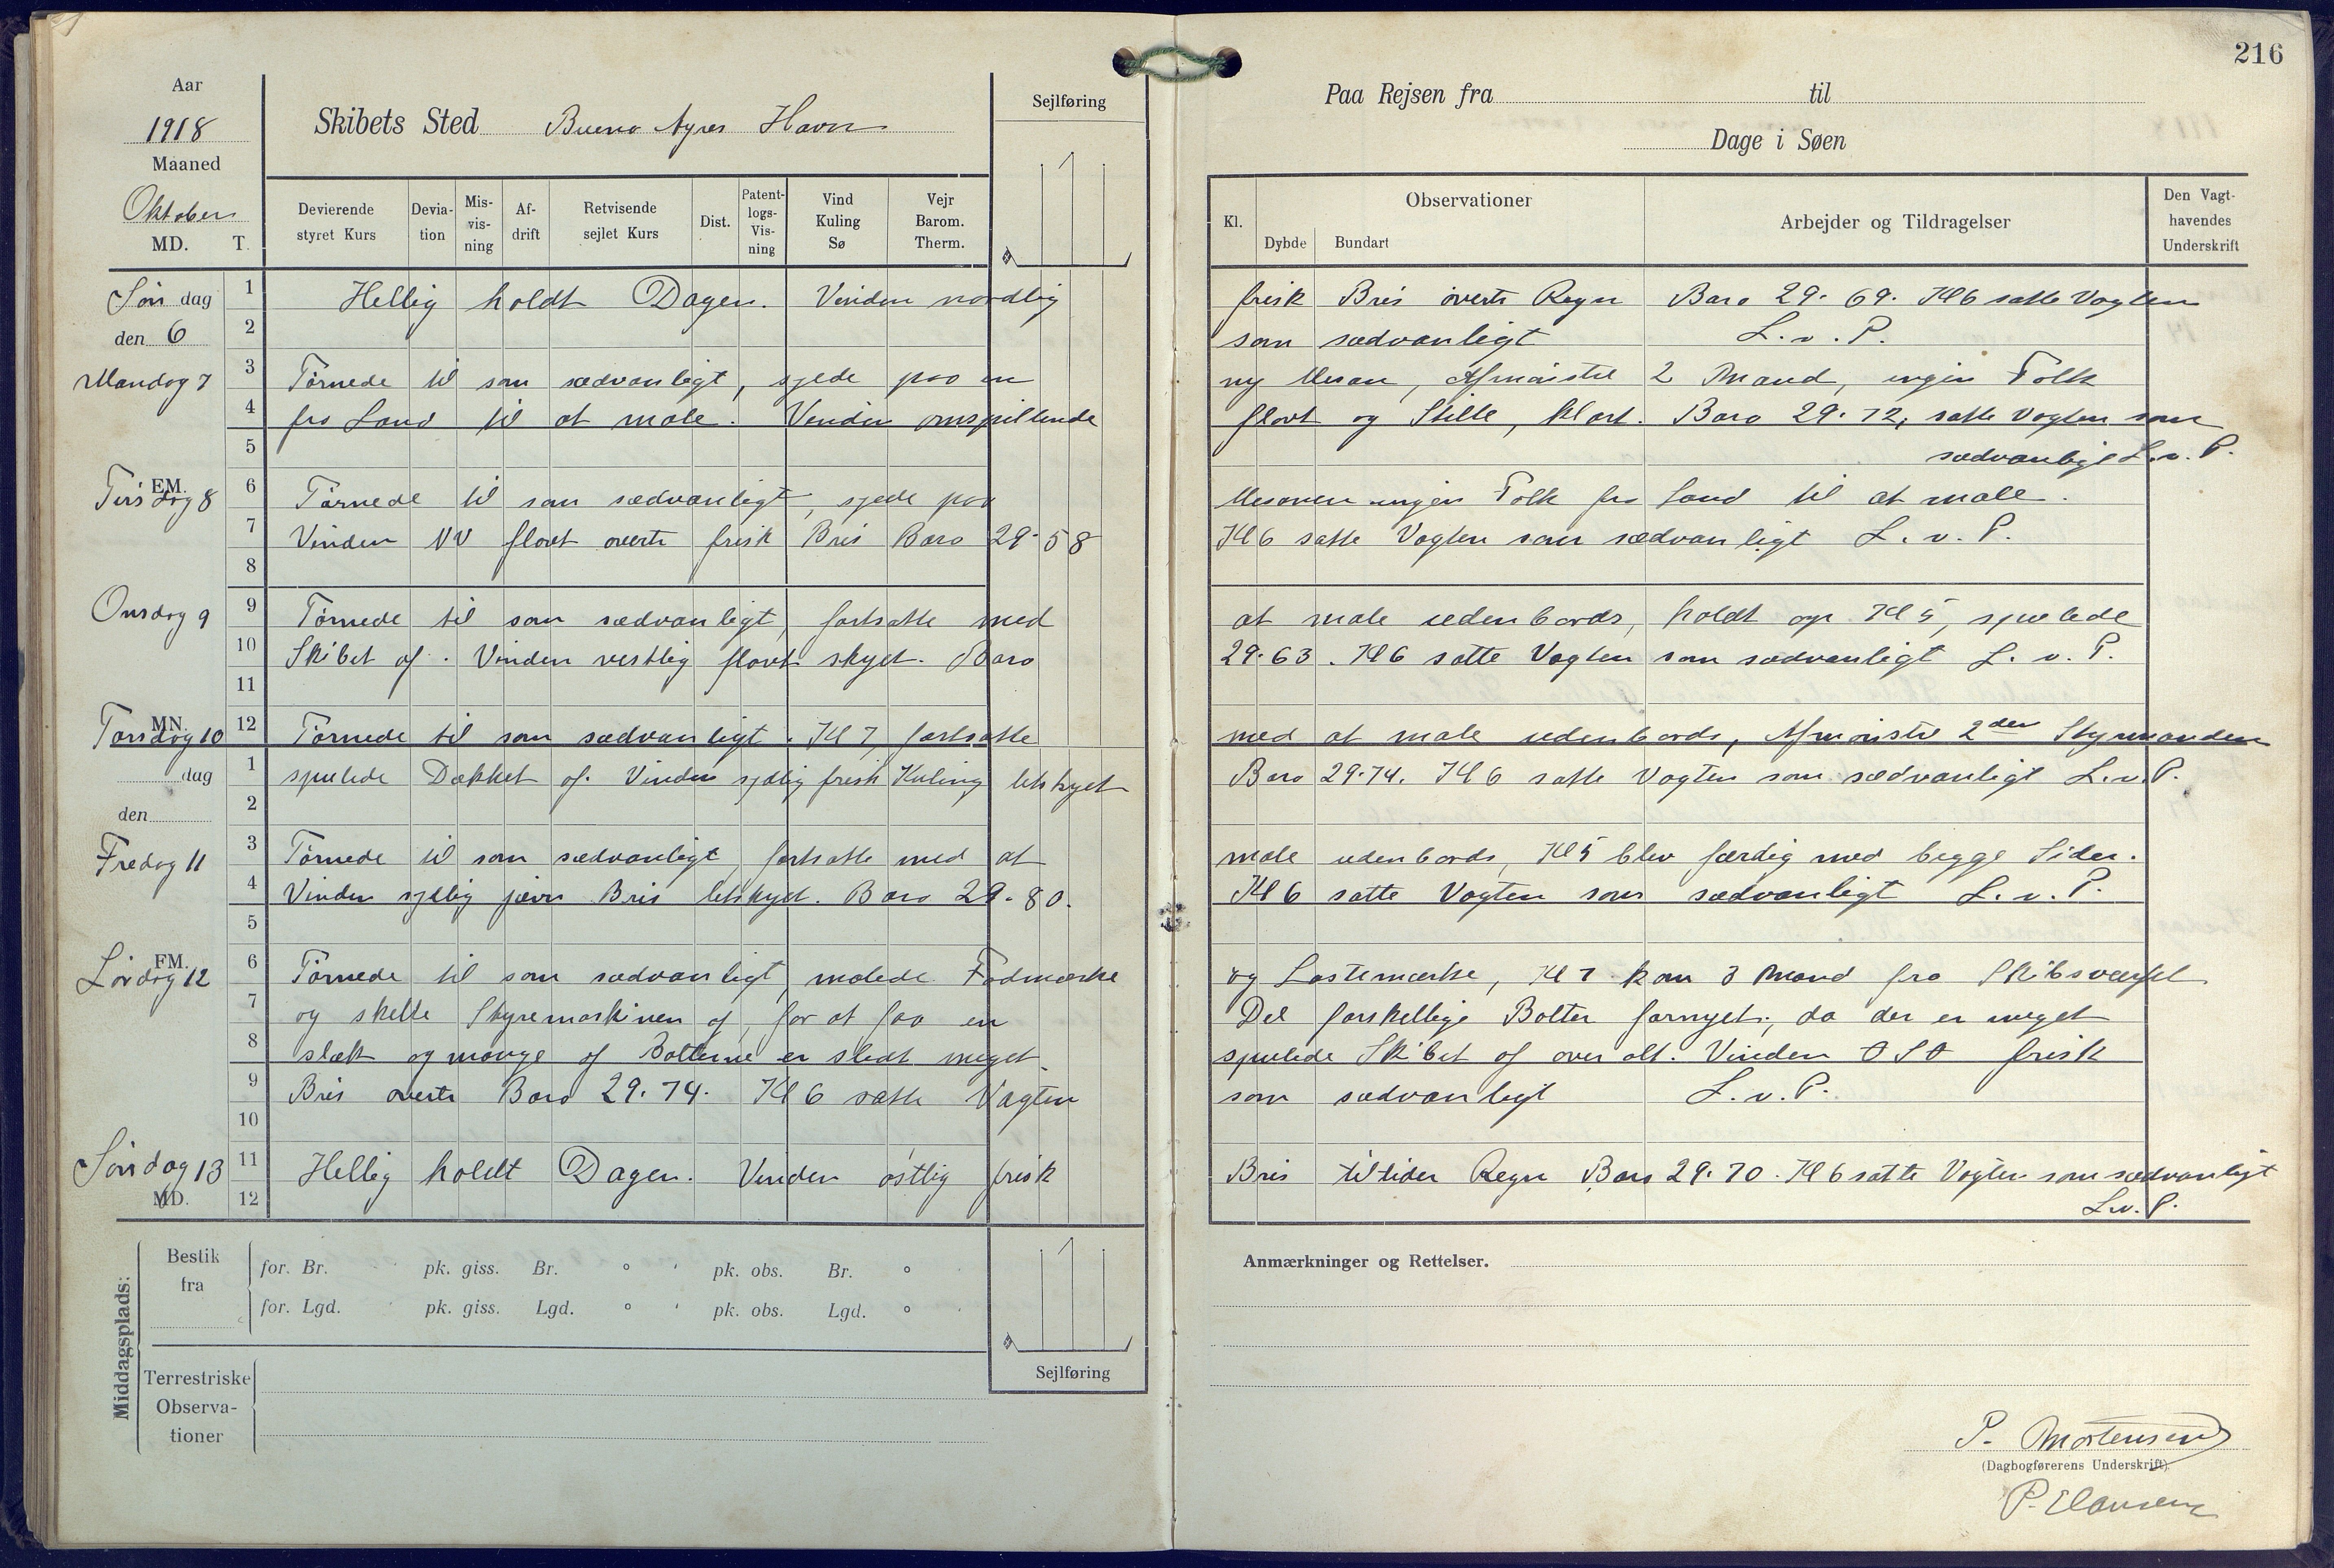 216
Aar
1918
Maaned
Oktober
MD. T.
Skibets Sted Bueno Ayres Havn
Sejlføring
Devierende styret Kurs
Devia-tion
Mis-vis-ning
Af-drift
Retvisende sejlet Kurs
Dist.
Patent-logs-Vis-ning
Vind Kuling Sø
Vejr Barom. Therm.
Paa Rejsen fra til
Dage i Søen
Kl.
Observationer
Dybde Bundart
Arbejder og Tildragelser
Den Vagt-havendes Underskrift
Søn dag
den 6
1 Hellig holdt Dagen. Vinden nordlig frisk Bris overtr Regn Baro 29.69. Kl 6 satte Vagten
2 som sædvanligt L.v.P.
Mandag 7
3 Tørnede til som sædvanligt, syede paa en ny Mesan, Afmønstret 2 Mand, ingen Folk
4 fra Land til at male. Vinden omspillende flovt og Stille, klart. Baro 29.72, satte Vagten som
5 sædvanligt L.v.P.
EM.
Tirsdag 8
6 Tørnede til som sædvanligt, syede paa Mesanen ingen Folk fra Land til at male.
7 Vinden NV flovt overtr frisk Bris Baro 29.58 Kl 6 satte Vagten som sædvanligt L.v.P.
8
Onsdag 9
9 Tørnede til som sædvanligt, fortsatte med at male udenbords, holdt op Kl 5, spulede
10 Skibet af. Vinden vestlig flovt skyet. Baro 29.63. Kl 6 satte Vagten som sædvanligt L.v.P.
11
MN.
Torsdag 10
12 Tørnede til som sædvanligt. Kl 7 fortsatte med at male udenbords, Afmønstret 2den Styrmanden
dag
1 spulede Dækket af. Vinden sydlig frisk Kuling letskyet Baro 29.74. Kl 6 satte Vagten som sædvanligt L.v.P.
den
2
Fredag 11
3 Tørnede til som sædvanligt, fortsatte med at male udenbords, Kl 5 blev færdig med begge Sider.
4 Vinden sydlig jævn Bris letskyet. Baro 29.80. Kl 6 satte Vagten som sædvanligt L.v.P.
5
FM.
Lørdag 12
6 Tørnede til som sædvanligt, malede Fodmærke og Lastemærke, Kl 7 kom 3 Mand fra Skibsværftet
7 og skelte Styremaskinen af, for at faa en Del forskellige Bolter fornyet, da der er meget
8 slæk og mange af Bolterne er slidt meget. spulede Skibet af over alt. Vinden OSO frisk
9 Bris overtr Baro 29.74. Kl 6 satte Vagten som sædvanligt L.v.P.
10
Søndag 13
11 Hellig holdt Dagen. Vinden østlig frisk Bris tiltider Regn Baro 29.70. Kl 6 satte Vagten som sædvanligt
MD.
12 L.v.P.
Middagsplads:
Bestik fra
for. Br. pk. giss. Br. ° ' pk. obs. Br. °
for. Lgd. pk. giss. Lgd. ° ' pk. obs. Lgd. °
Terrestriske Observa-tioner
Sejlføring
Anmærkninger og Rettelser.
P. Mortensen
(Dagbogførerens Underskrift).
P. Hansen